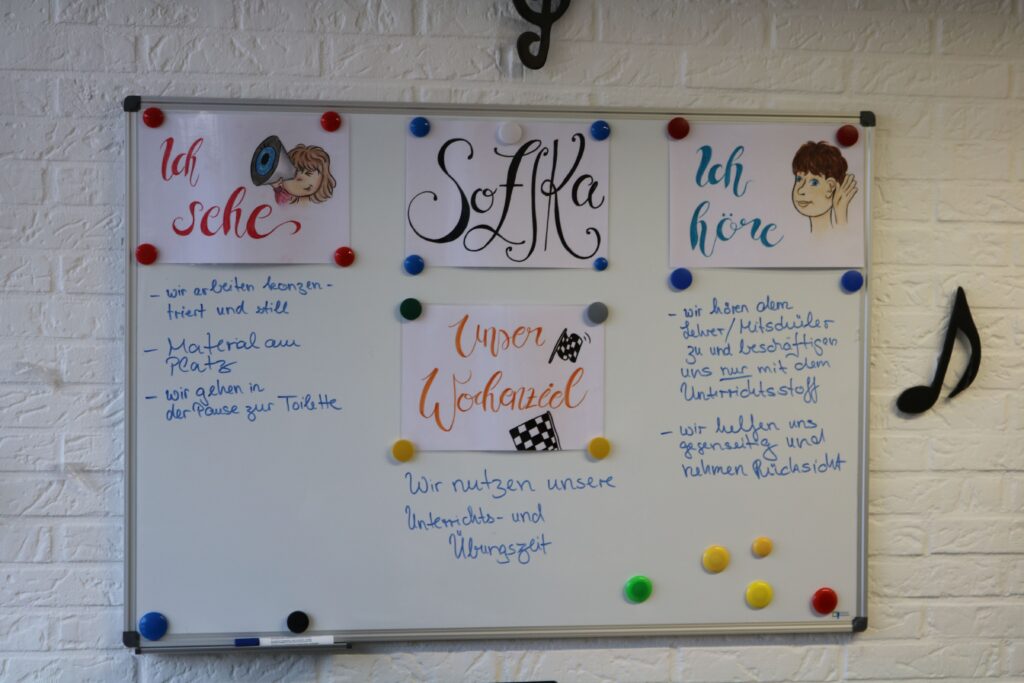 Ich
sehe
– wir arbeiten konzen-
triert und still
– Material am
Platz
– wir gehen in
der Pause zur Toilette
SoZIKa
Unser
Wochenziel
Wir nutzen unsere
Unterrichts- und
Übungszeit
Ich
höre
– wir hören dem
Lehrer/Mitschüler
zu und beschäftigen
uns nur mit dem
Unterrichtsstoff
– wir helfen uns
gegenseitig und
nehmen Rücksicht